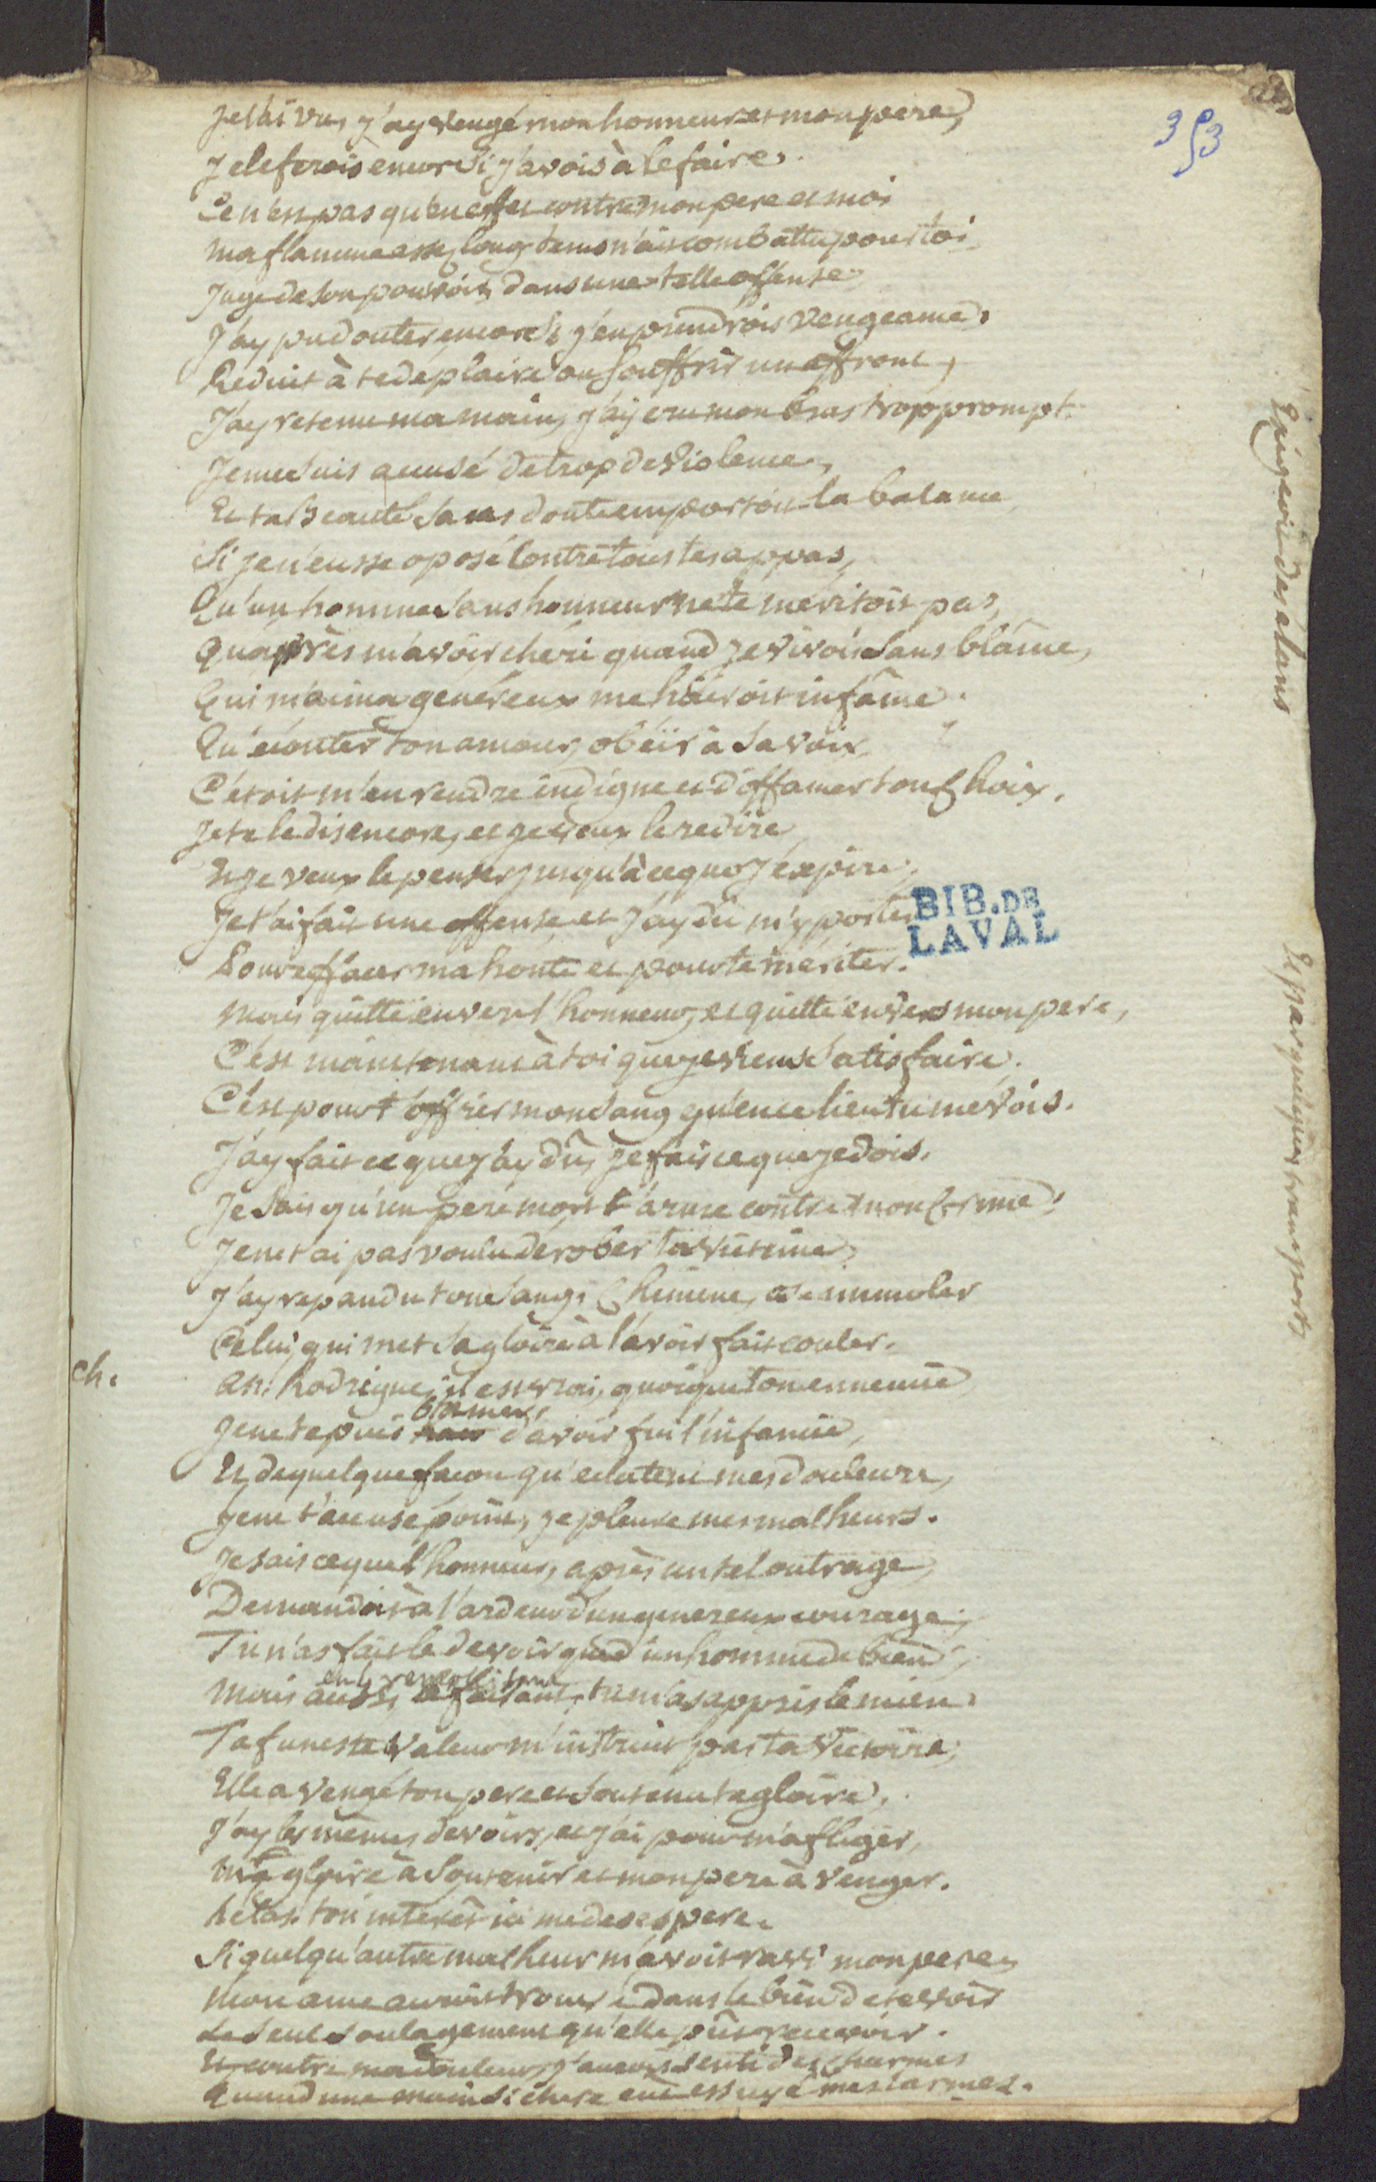 353
Je l'ai vu, j'ay vengé mon honneur et mon pere,
Je le ferois encor si j'avois à le faire.
Ce n'est pas qu'en effet contre mon pere et moi
ma flamme assez long tems n'ait combattu pour toi
Juge de son pouvoir, dans une telle offense
J'ay pu douter encor si j'en prendrois vengeance.
Reduit à te deplaire ou souffrir un affront,
J'ay retenu ma main, j'ay cru mon bras trop prompt
Je me suis accusé de trop de violence,
Et ta Beauté sans doute emportoit la balance
Si je n'eusse oposé contre tous tes appas,
Qu'un homme sans honneur ne te méritoit pas,
Qu'après m'avoir chéri quand je vivois sans blâme,
Qui m'aima généreux me haïroit infâme.
Qu'écouter ton amour, obéir à sa voix
C'étoit m'en rendre indigne et diffamer ton choix.
Je te le dis encore, et je veux le redire
Et je veux le penser jusqu'à ce que j'éxpire,
Je t'ai fait une offense et j'ay dû m'y porter
Pour effacer ma honte et pour te mériter.
Mais quitte envers l'honneur, et quitte envers mon pere,
C'est maintenant à toi que je viens satisfaire.
C'est pour t'offrir mon sang qu'en ce lieu tu me vois.
J'ay fait ce que j'ay dû, je fais ce que je dois.
Je sais qu'un père mort t'arme contre mon crime!
Je ne t'ai pas voulu dérober ta victime,
J'ay repandu ton sang, Chimene,
Celui qui met sa gloire à l'avoir fait couler.
Ch. Ah, Rodrigue, il est vrai, quoique ton ennemie
Je ne te puis blamer d'avoir fui l'infamie,
Et de quelque façon qu'éclatent mes douleurs,
Je ne t'accuse point, je pleure mes malheurs.
Je sais ce que l'honneur, après un tel outrage
Demandoit à l'ardeur d'un genereux courage;
Tu n'as fait le devoir que d'un homme de bien;
en le
Mais aussi le faisant, tu m'as appris le mien.
Ta funeste valeur m'instruit par ta victoire;
Elle a vengé ton pere et soutenu ta gloire,
J'ay les mêmes devoirs, et j'ai pour m'afliger,
Ma gloire à soutenir et mon pere à venger.
hélas ton intérêt ici me desespere.
Si quelqu'autre malheur m'avoit ravi mon pere,
Mon ame auroit trouvé dans le bien de te voir
Le seul soulagement qu'elle pût recevoir.
Et contre ma douleur j'aurois senti des charmes
Quand une main si chere eut essuyé mes larmes.
BIB. DE
LAVAL
des elans
Et par quelques transports